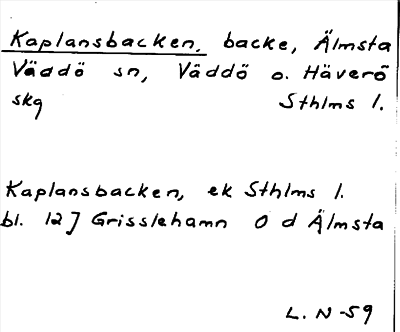 Kaplansbacken, backe, Älmsta
Väddö sn, Väddö o. Häverö
skg Sthlms l.
Kaplansbacken, ek Sthlms l.
bl. 12] Grisslehamn O d Älmsta
L. N -59